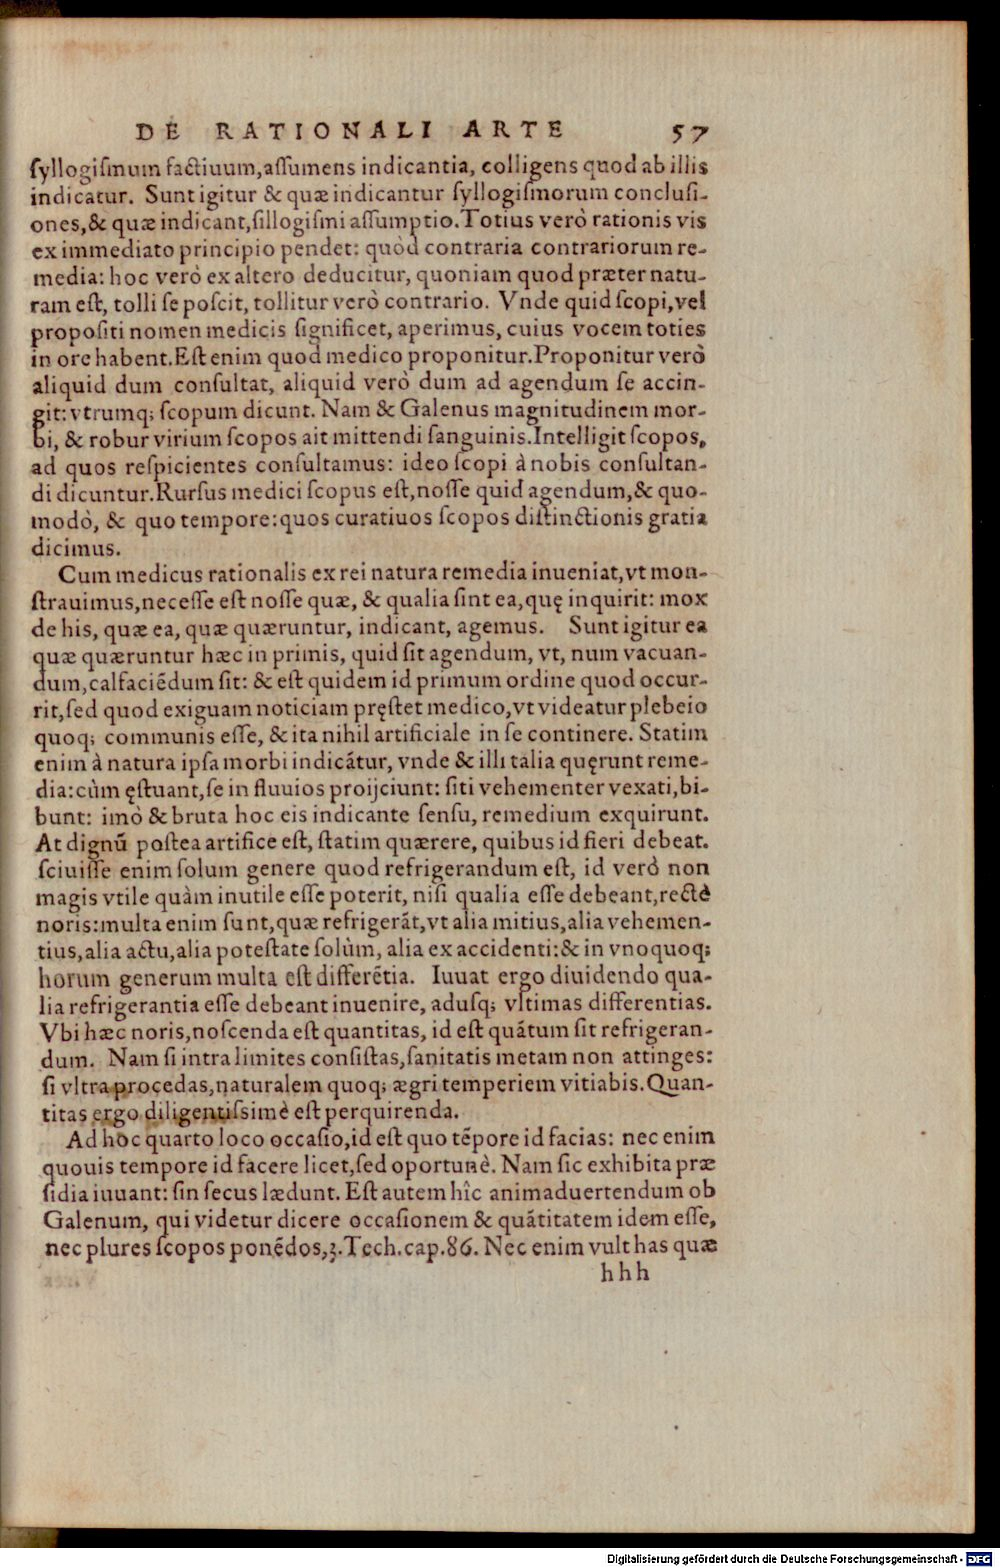 DE RATIONALI ARTE 57
ſyllogiſmum factiuum,aſſumens indicantia, colligens quod ab illis
indicatur. Sunt igitur & quæ indicantur ſyllogiſmorum concluſi-
ones,& quæ indicant,ſillogiſmi aſſumptio.Totius verò rationis vis
ex immediato principio pendet: quòd contraria contrariorum re-
media: hoc verò ex altero deducitur, quoniam quod præter natu-
ram eſt, tolli ſe poſcit, tollitur verò contrario. Vnde quid ſcopi,vel
propoſiti nomen medicis ſignificet, aperimus, cuius vocem toties
in ore habent.Eſt enim quod medico proponitur.Proponitur verò
aliquid dum conſultat, aliquid verò dum ad agendum ſe accin-
git: vtrumq; ſcopum dicunt. Nam & Galenus magnitudinem mor-
bi, & robur virium ſcopos ait mittendi ſanguinis.Intelligit ſcopos,
ad quos reſpicientes conſultamus: ideo ſcopi à nobis conſultan-
di dicuntur.Rurſus medici ſcopus eſt,noſſe quid agendum,& quo-
modò, & quo tempore:quos curatiuos ſcopos diſtinctionis gratia
dicimus.
Cum medicus rationalis ex rei natura remedia inueniat,vt mon-
ſtrauimus,neceſſe eſt noſſe quæ, & qualia ſint ea,quę inquirit: mox
de his, quæ ea, quæ quæruntur, indicant, agemus. Sunt igitur ea
quæ quæruntur hæc in primis, quid ſit agendum, vt, num vacuan-
dum,calfaciẽdum ſit: & eſt quidem id primum ordine quod occur-
rit,ſed quod exiguam noticiam pręſtet medico,vt videatur plebeio
quoq; communis eſſe, & ita nihil artificiale in ſe continere. Statim
enim à natura ipſa morbi indicãtur, vnde & illi talia quęrunt reme-
dia:cùm ęſtuant,ſe in fluuios proijciunt: ſiti vehementer vexati,bi-
bunt: imò & bruta hoc eis indicante ſenſu, remedium exquirunt.
At dignũ poſtea artifice eſt, ſtatim quærere, quibus id fieri debeat.
ſciuiſſe enim ſolum genere quod refrigerandum eſt, id verò non
magis vtile quàm inutile eſſe poterit, niſi qualia eſſe debeant,rectè
noris:multa enim ſunt,quæ refrigerãt,vt alia mitius,alia vehemen-
tius,alia actu,alia poteſtate ſolùm, alia ex accidenti:& in vnoquoq;
horum generum multa eſt differẽtia. Iuuat ergo diuidendo qua-
lia refrigerantia eſſe debeant inuenire, aduſq; vltimas differentias.
Vbi hæc noris,noſcenda eſt quantitas, id eſt quãtum ſit refrigeran-
dum. Nam ſi intra limites conſiſtas,ſanitatis metam non attinges:
ſi vltra procedas,naturalem quoq; ægri temperiem vitiabis.Quan-
titas ergo diligentiſsimè eſt perquirenda.
Ad hoc quarto loco occaſio,id eſt quo tẽpore id facias: nec enim
quouis tempore id facere licet,ſed oportunè. Nam ſic exhibita præ
ſidia iuuant: ſin ſecus lædunt. Eſt autem hîc animaduertendum ob
Galenum, qui videtur dicere occaſionem & quãtitatem idem eſſe,
nec plures ſcopos ponẽdos,3.Tech.cap.86. Nec enim vult has quæ
hhh
Digitalisierung gefördert durch die Deutsche Forschungsgemeinschaft - DFG